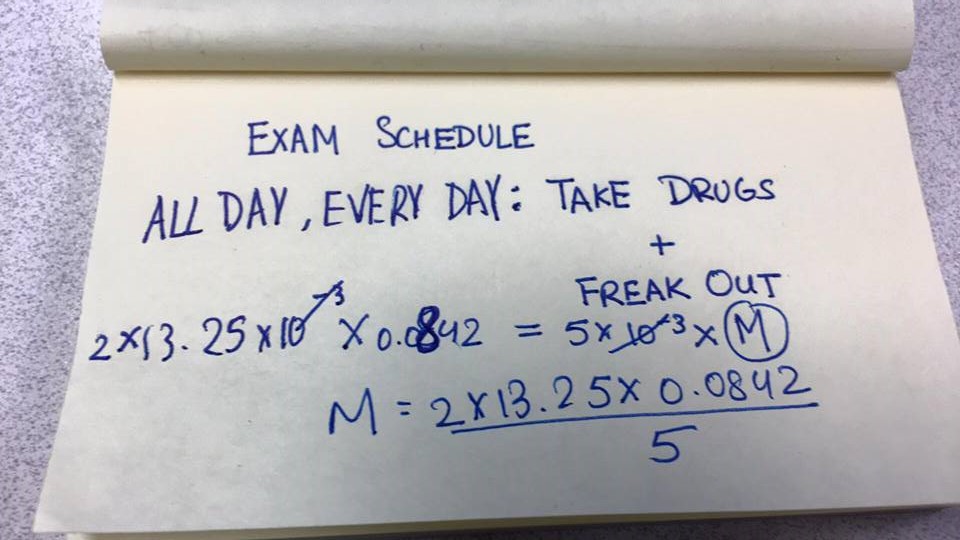 EXAM SCHEDULE
ALL DAY, EVERY DAY: TAKE DRUGS
+
FREAK OUT
2×13.25×10⁻³ × 0.0842 = 5×10⁻³ × M
M = 2×13.25× 0.0842
5